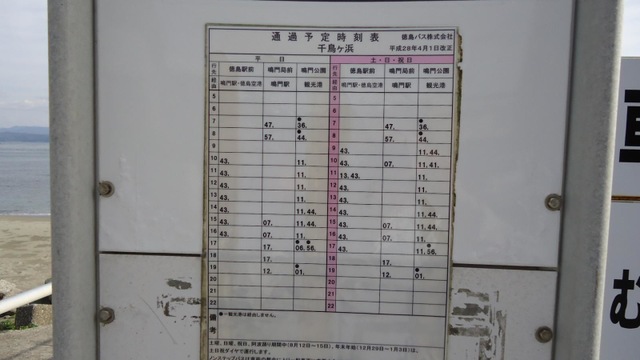 通過予定時刻表
千鳥ヶ浜
徳島バス株式会社
平成28年4月1日改正
平日
土・日・祝日
行先 徳島駅前 鳴門局前 鳴門公園 行先 徳島駅前 鳴門局前 鳴門公園
経由 鳴門駅・徳島空港 鳴門駅 観光港 経由 鳴門駅・徳島空港 鳴門駅 観光港
5 5
6 6
7 47. ●36. 7 47. ●36.
8 57. ●44. 8 57. ●44.
9 9 43. 11.44.
10 43. 11. 10 43. 07. 11.41.
11 43. 11. 11 13.43. 11.
12 43. 11. 12 43. 11.
13 43. 11. 13 43. 11.
14 43. 11.44. 14 43. 11.44.
15 43. 07. 11.44. 15 43. 07. 11.44.
16 43. 07. 11. 16 43. 07. 11.
17 17. ●06.●56. 17 43. 11.●56.
18 17. 18 17.
19 12. ●01. 19 12. ●01.
20 20
21 21
22 22
備考
●－観光港は経由しません。
土曜、日曜、祝日、阿波踊り期間中(8月12日～15日)、年末年始(12月29日～1月3日)は、
土日祝ダイヤで運行します。
む